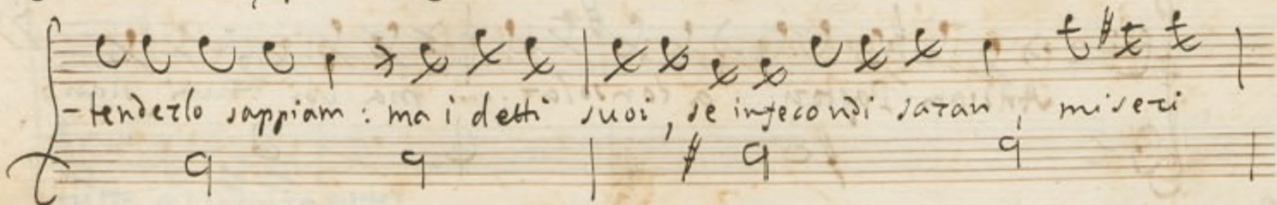 -tenderlo sappiam : ma i detti suoi, se infecondi saran, miseri